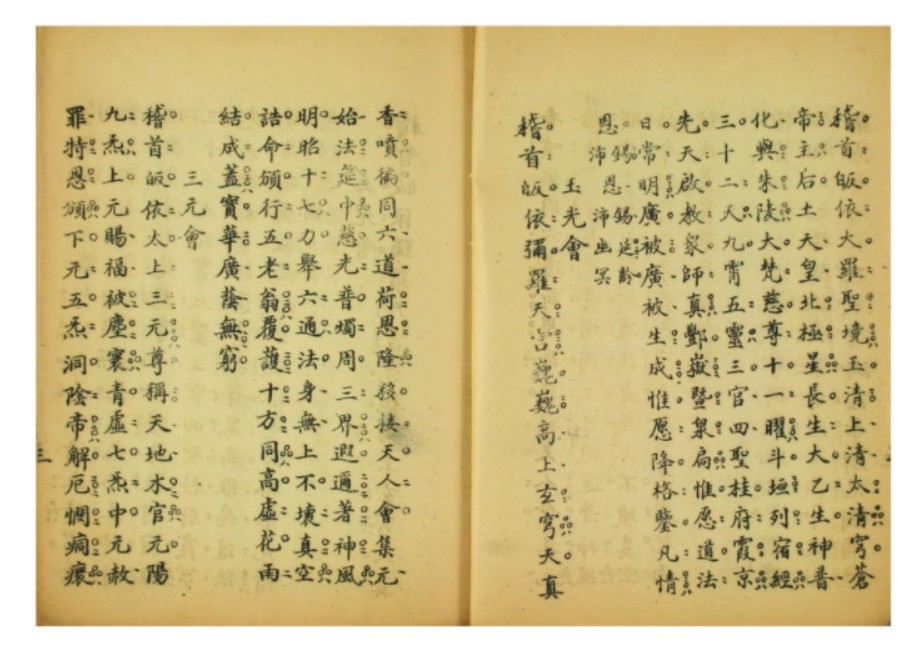 稽首皈依大羅聖境玉清上清太清穹蒼
帝主后土天皇北極星長生大乙生神普
化興朱陵大梵慈尊十一曜斗垣列宿經
三十二天九霄五靈三官四聖桂府霞京
先天啟教眾師真酆嶽暨泉扃惟愿道法
日常明廣被廣被生成惟愿降格鑒凡情
恩錫恩錫延齡
沛沛幽冥
玉光會
稽首皈依彌羅天宮巍巍高上玄穹天真
香噴徧同六道荷恩隆接天人會集元
始法筵中慈光普燭周三界遐邇著神風
明昭十七力舉六通法身無上不壞真空
誥命頒行五老翁覆護十方同高虛花雨
結成蓋寶華廣蔭無窮
三元會
稽首皈依太上三元尊稱天地水官元陽
九炁上元賜福被塵寰青虛七炁中元赦
罪特恩頒下元五炁洞陰帝解厄惘痌瘝
三